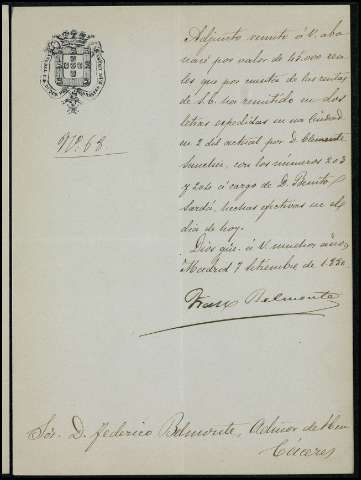 Nº. 63.
Adjunto remito á V. abo
naré por valor de 45.000 rea
les que por cuenta de las rentas
de S.E. ha remitido en dos
letras espedidas en esa Ciudad
en 2 del actual por D. Clemente
Sanchez, con los números 203
y 204 á cargo de D. Benito
Sardá, hechas efectivas en el
dia de hoy.
Dios gûe. á V. muchos años,
Madrid 7 Setiembre de 1880
Belmonte
Sor. D. Federico Belmonte, Admor de
Cáceres